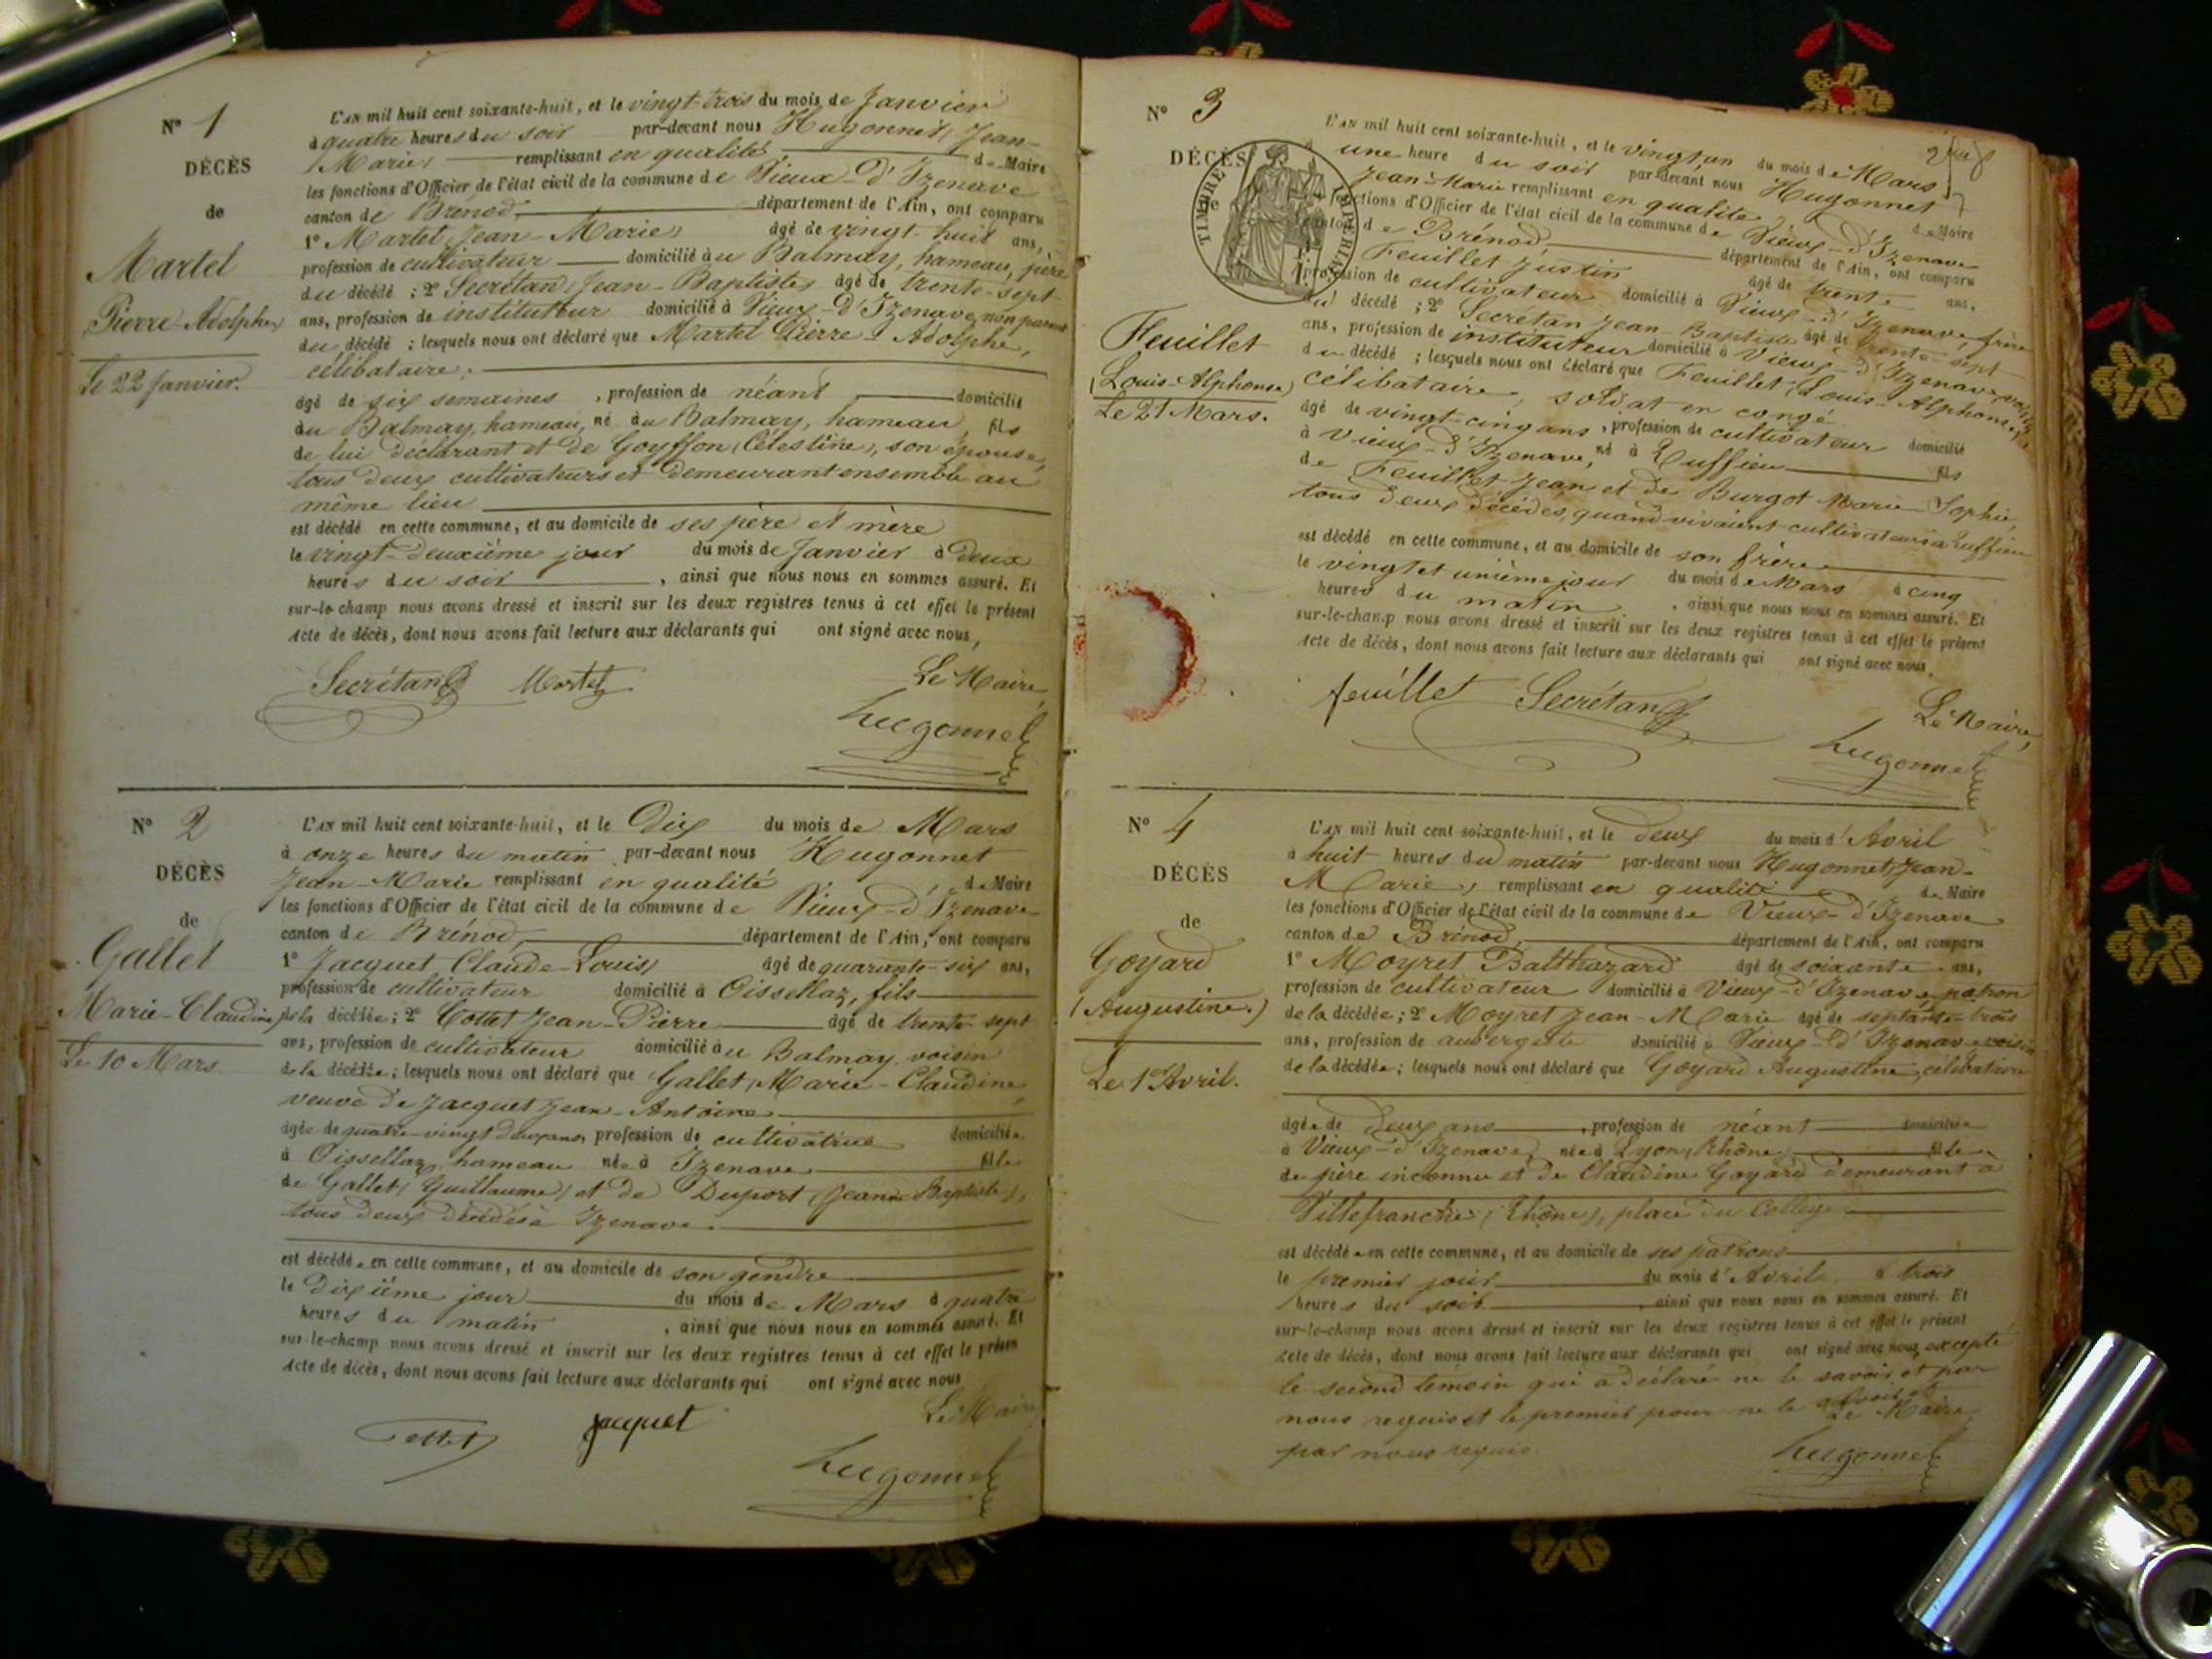 N° 1
DÉCÈS
de
Martel
Pierre-Adolphe
Le 22 Janvier.
L'AN mil huit cent soixante-huit, et le vingt-trois du mois de Janvier
à quatre heures du soir par-devant nous Hugonnet, Jean-
Marie, remplissant en qualité de Maire
les fonctions d'Officier de l'état civil de la commune de Vieux-d'Izenave
canton de Brénod, département de l'Ain, ont comparu
1° Martel Jean-Marie, âgé de vingt-huit ans,
profession de cultivateur domicilié au Balmay, hameau, père
du décédé ; 2° Secrétan, Jean-Baptiste, âgé de trente-sept
ans, profession de instituteur domicilié à Vieux-d'Izenave, non parent
du décédé ; lesquels nous ont déclaré que Martel Pierre-Adolphe,
célibataire,
âgé de six semaines, profession de néant domicilié
au Balmay, hameau, né au Balmay, hameau, fils
de lui déclarant et de Goyffon (Célestine), son épouse,
tous deux cultivateurs et demeurant ensemble au
même lieu
est décédé en cette commune, et au domicile de ses père et mère
le vingt-deuxième jour du mois de Janvier à deux
heures du soir, ainsi que nous nous en sommes assuré. Et
sur-le-champ nous avons dressé et inscrit sur les deux registres tenus à cet effet le présent
Acte de décès, dont nous avons fait lecture aux déclarants qui ont signé avec nous,
Secrétan Martel Le Maire,
Hugonnet
N° 2
DÉCÈS
de
Gallet
Marie-Claudine
Le 10 Mars.
L'AN mil huit cent soixante-huit, et le Dix du mois de Mars
à onze heures du matin par-devant nous Hugonnet
Jean-Marie remplissant en qualité de Maire
les fonctions d'Officier de l'état civil de la commune de Vieux-d'Izenave
canton de Brénod, département de l'Ain, ont comparu
1° Jacquet Claude-Louis, âgé de quarante-six ans,
profession de cultivateur domicilié à Oissellaz, fils
de la décédée ; 2° Cottet Jean-Pierre âgé de trente-sept
ans, profession de cultivateur domicilié au Balmay, voisin
de la décédée ; lesquels nous ont déclaré que Gallet, Marie-Claudine,
veuve de Jacquet Jean-Antoine
âgée de quatre-vingt deux ans, profession de cultivatrice domiciliée
à Oissellaz, hameau née à Izenave fille
de Gallet (Guillaume) et de Duport (Jeanne-Baptiste),
tous deux décédés à Izenave.
est décédée en cette commune, et au domicile de son gendre
le dixième jour du mois de Mars à quatre
heures du matin, ainsi que nous nous en sommes assuré. Et
sur-le-champ nous avons dressé et inscrit sur les deux registres tenus à cet effet le présent
Acte de décès, dont nous avons fait lecture aux déclarants qui ont signé avec nous
Le Maire
Cottet Jacquet
Hugonnet
N° 3
DÉCÈS
TIMBRE IMPÉRIAL
Feuillet
(Louis-Alphonse)
Le 21 Mars.
L'AN mil huit cent soixante-huit, et le vingt un du mois de Mars
une heure du soir par-devant nous Hugonnet
Jean-Marie remplissant en qualité de Maire
fonctions d'Officier de l'état civil de la commune de Vieux-d'Izenave
canton de Brénod département de l'Ain, ont comparu
1° Feuillet Justin âgé de trente ans,
profession de cultivateur domicilié à Vieux-d'Izenave, frère
du décédé ; 2° Secrétan Jean-Baptiste âgé de trente-sept
ans, profession de instituteur domicilié à Vieux-d'Izenave
du décédé ; lesquels nous ont déclaré que Feuillet (Louis-Alphonse),
célibataire, soldat en congé
âgé de vingt-cinq ans, profession de cultivateur domicilié
à Vieux-d'Izenave, né à Ruffieu fils
de Feuillet Jean et de Burgot Marie-Sophie,
tous deux décédés, quand vivaient cultivateurs à Ruffieu
est décédé en cette commune, et au domicile de son frère
le vingt et unième jour du mois de Mars à cinq
heures du matin, ainsi que nous nous en sommes assuré. Et
sur-le-champ nous avons dressé et inscrit sur les deux registres tenus à cet effet le présent
Acte de décès, dont nous avons fait lecture aux déclarants qui ont signé avec nous,
feuillet Secrétan Le Maire,
Hugonnet
N° 4
DÉCÈS
de
Goyard
(Augustine.)
Le 1er Avril.
L'AN mil huit cent soixante-huit, et le deux du mois d'Avril
à huit heures du matin par-devant nous Hugonnet, Jean-
Marie, remplissant en qualité de Maire
les fonctions d'Officier de l'état civil de la commune de Vieux-d'Izenave
canton de Brénod, département de l'Ain, ont comparu
1° Moyret Balthazard âgé de soixante ans,
profession de cultivateur domicilié à Vieux-d'Izenave patron
de la décédée ; 2° Moyret Jean-Marie âgé de septante-trois
ans, profession de aubergiste domicilié à Vieux-d'Izenave voisin
de la décédée ; lesquels nous ont déclaré que Goyard Augustine, célibataire
âgée de deux ans, profession de néant domiciliée
à Vieux-d'Izenave, née à Lyon, Rhône, fille
de père inconnu et de Claudine Goyard demeurant à
Villefranche, (Rhône), place du Collège
est décédée en cette commune, et au domicile de ses patrons
le premier jour du mois d'Avril à trois
heures du soir, ainsi que nous nous en sommes assuré. Et
sur-le-champ nous avons dressé et inscrit sur les deux registres tenus à cet effet le présent
Acte de décès, dont nous avons fait lecture aux déclarants qui ont signé avec nous, excepté
le second témoin qui a déclaré ne le savoir et par
nous requis et le premier pour ne le savoir et
par nous requis.
Le Maire
Hugonnet